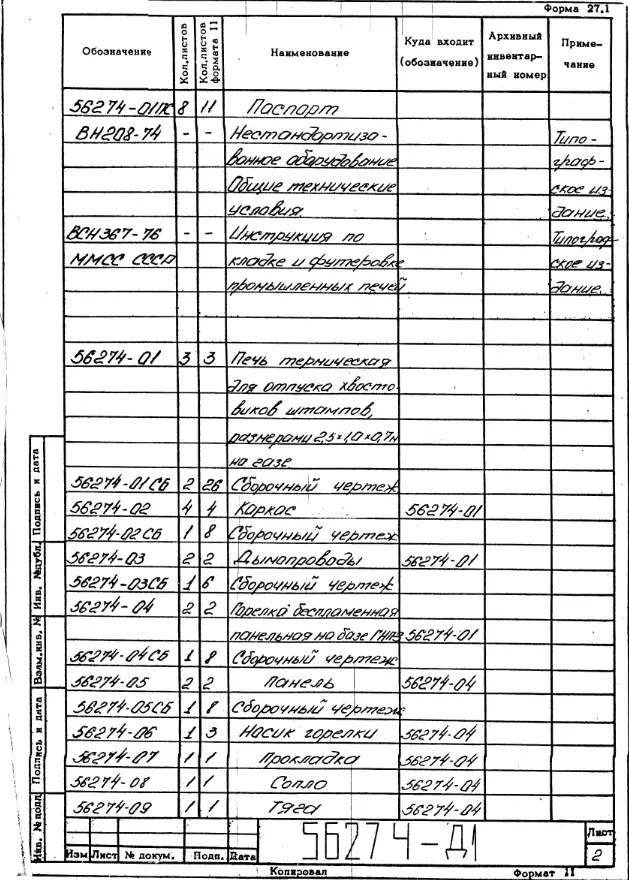 Форма 27.1
Обозначение Кол.листов Кол.листов формата 11 Наименование Куда входит (обозначение) Архивный инвентар- ный номер Приме- чание
56274-01ПС 8 11 Паспорт
ВН208-74 - - Нестандартизо- Типо-
ванное оборудование граф-
Общие технические ское из-
условия дание.
ВСН367-76 - - Инструкция по Типограф-
ММСС СССР кладке и футеровке ское из-
промышленных печей дание.
56274-01 3 3 Печь термическая
для отпуска хвосто-
виков штампов,
размерами 2,5×1,0×0,7м
на газе
56274-01СБ 2 26 Сборочный чертеж
56274-02 4 4 Каркас 56274-01
56274-02СБ 1 8 Сборочный чертеж
56274-03 2 2 Дымопроводы 56274-01
56274-03СБ 1 6 Сборочный чертеж
56274-04 2 2 Горелка беспламенная
панельная на базе 56274-01
56274-04СБ 1 8 Сборочный чертеж
56274-05 2 2 Панель 56274-04
56274-05СБ 1 8 Сборочный чертеж
56274-06 1 3 Носик горелки 56274-04
56274-07 1 1 Прокладка 56274-04
56274-08 1 1 Сопло 56274-04
56274-09 1 1 Тяга 56274-04
Инв. № подл. Подпись и дата Взам.инв. № Инв. №дубл. Подпись и дата
Изм Лист № докум. Подп. Дата
56274-Д1
Лист
2
Копировал Формат 11